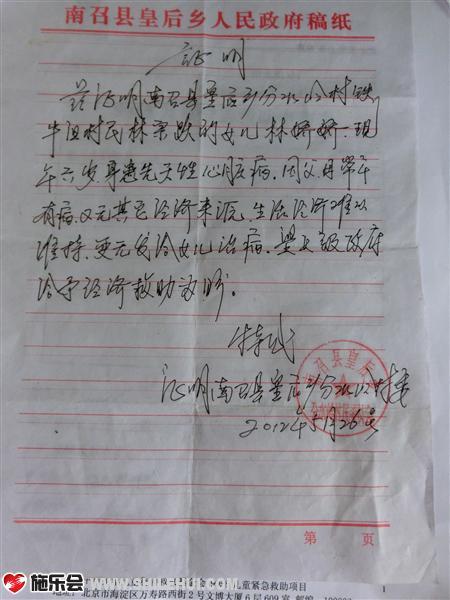 南召县皇后乡人民政府稿纸
证明
兹证明南召县皇后乡分水岭村铁
牛组村民林宗跃的女儿林娇娇.现
年六岁身患先天性心脏病.因父母常年
有病.又无其它经济来源.生活经济难以
维持.更无发给女儿治病.望上级政府
给予经济救助为盼。
特此
证明南召县皇后乡分水岭村委
2012年5月26号
第 页
施乐会
WWW.SHILEHUI.COM
儿童紧急救助项目
地址:北京市海淀区万寿路西街2号文博大厦6层609室 邮编